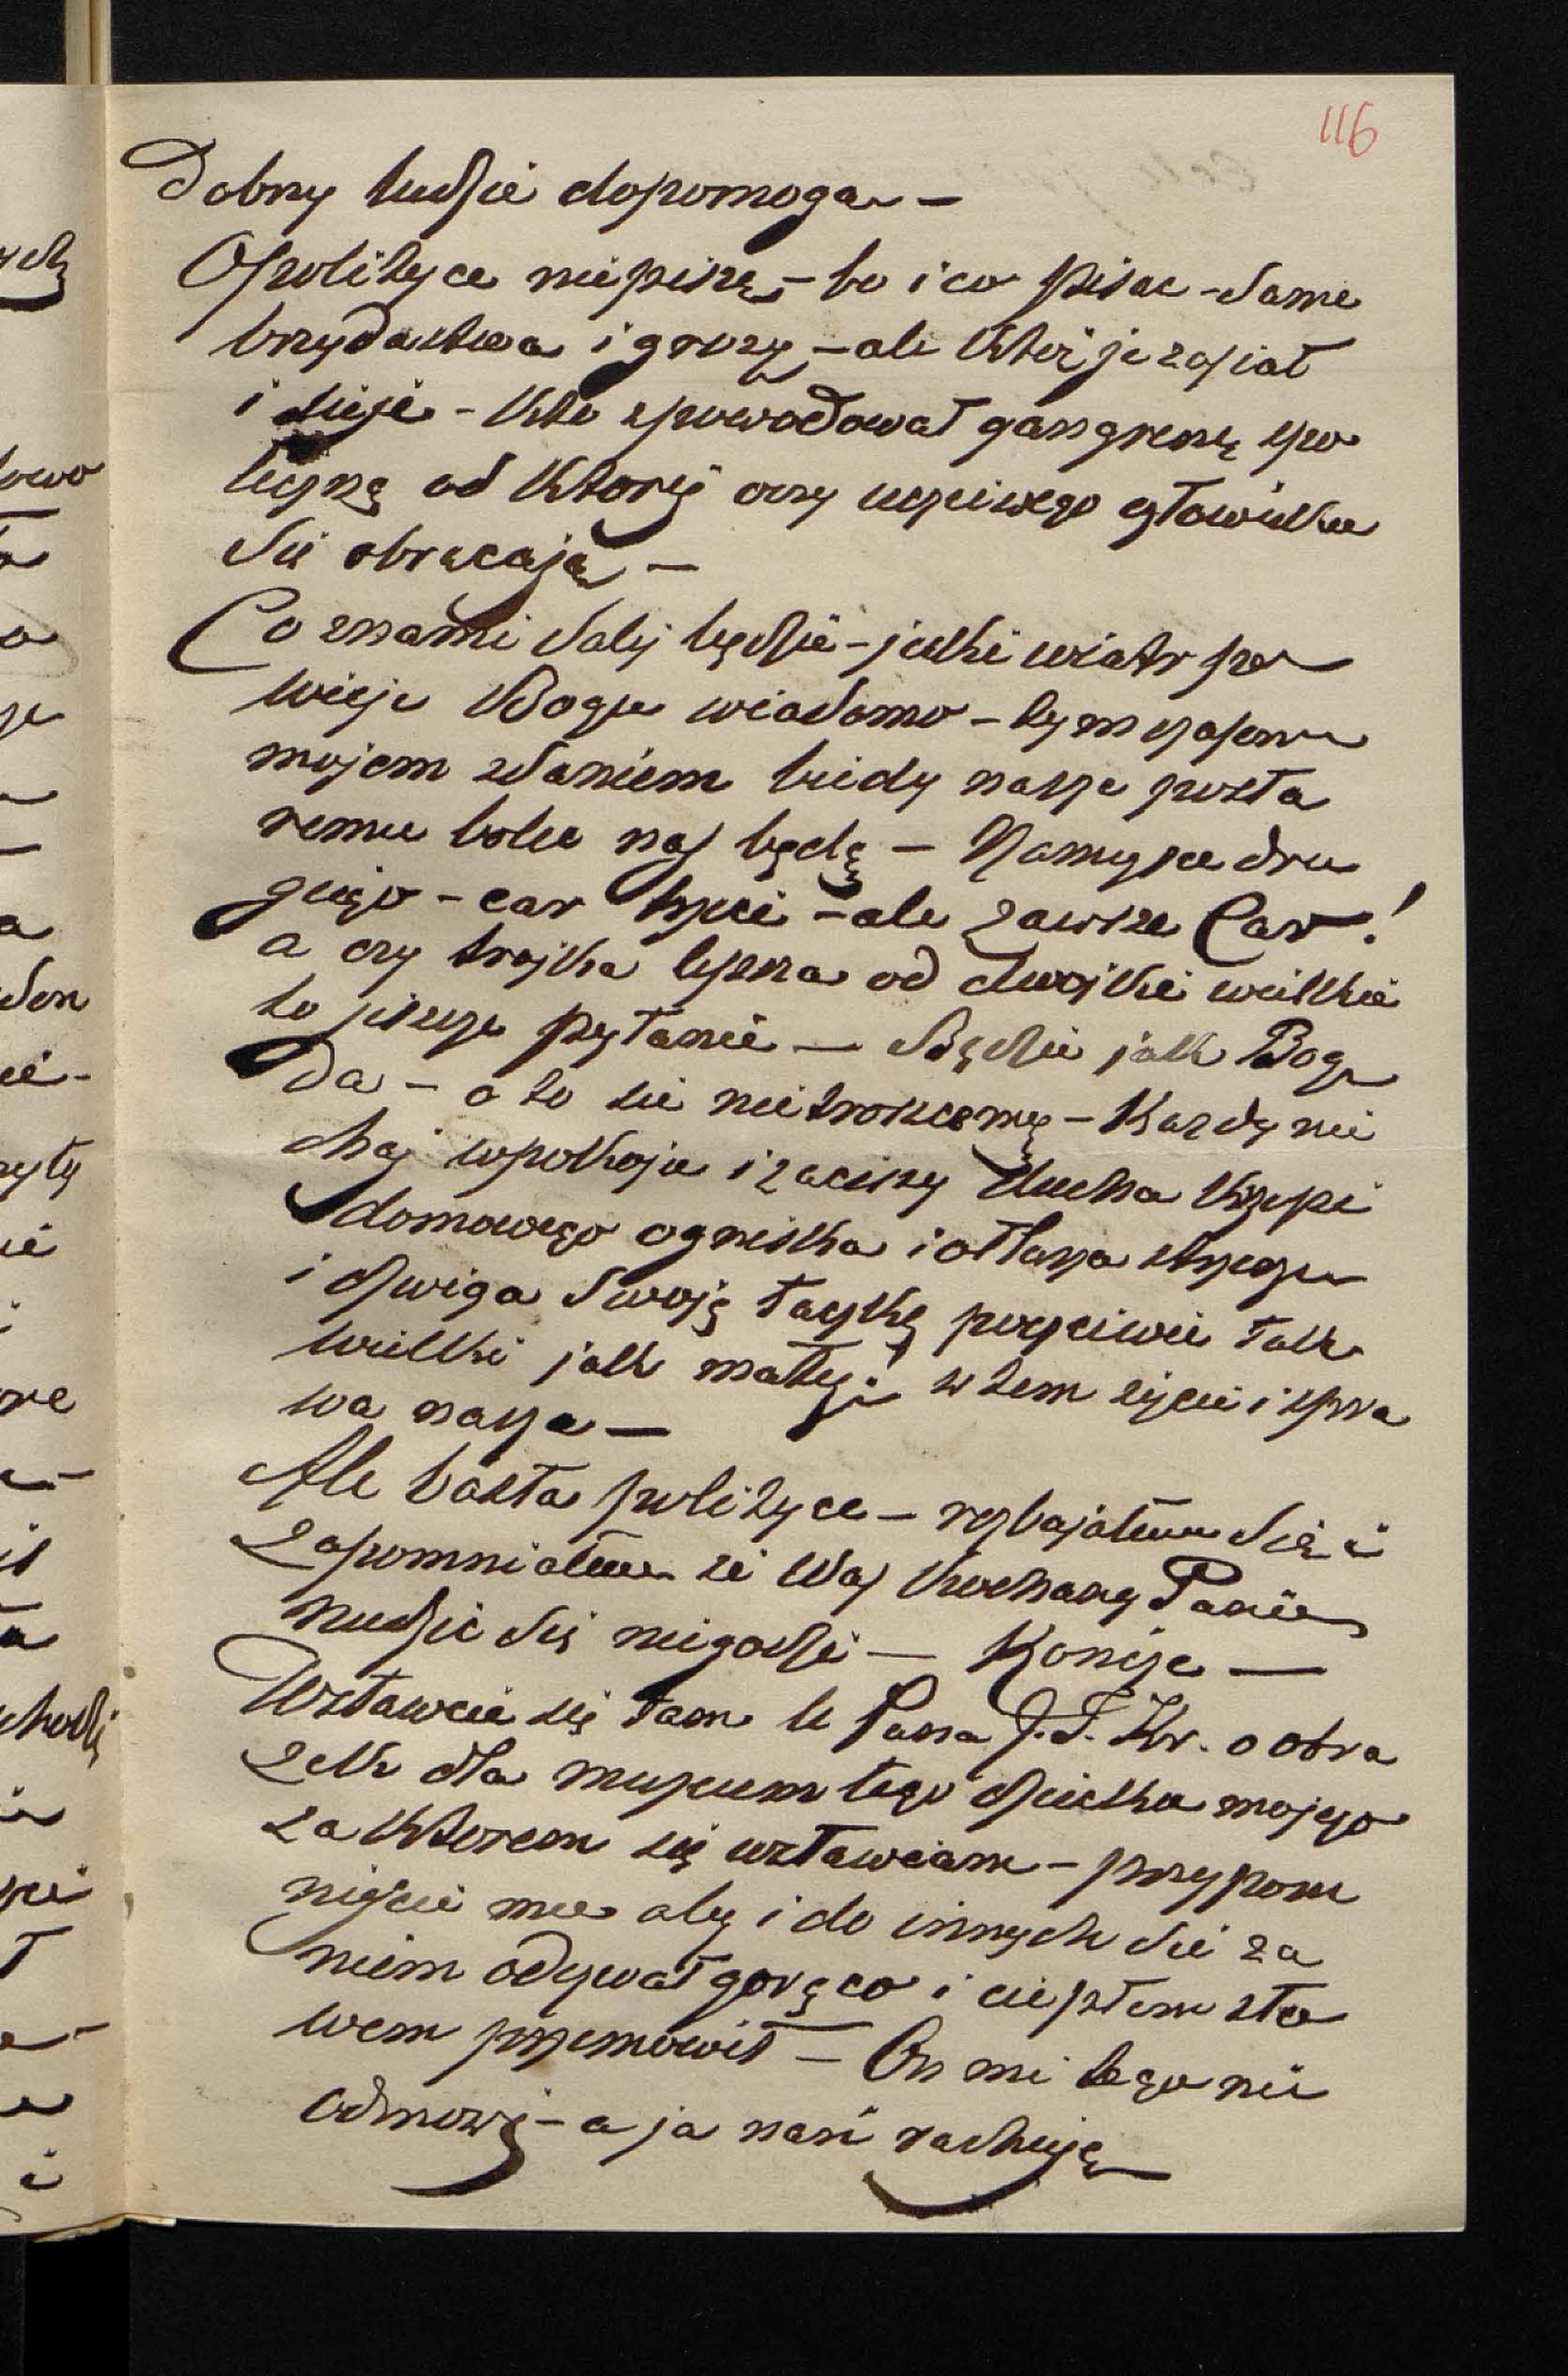 116
Dobrzy ludzie dopomogą –
O polityce niepiszę – bo i co pisac – Same
brzydactwa i grozy – ale któż je zasiał
i sieje – Kto spowodował gangrenę spo
łeczną od ktorej oczy uczciwego człowieka
Sie obracają –
Co znami dalej będzie – jaki wiatr po
wieje Bogu wiadomo – tymczasem
mojem zdaniem biedy nasze posta
remu boleć nas będą – Namyszce dru
giego – car trzeci – ale zawsze Car!
a czy trojka lepsza od dwojki wielkie
to jeszcze pytanie – Będzie jak Bog
da – o to sie nietroszczmy – Kazdy nie
chaj wpokoju i zaciszy ducha krzepi
domowego ogniska i ołtarza strzeze
i dzwiga Swoję taczkę poczciwie tak
wielki jak mały: w tem zycie i spra
wa nasza –
Ale basta polityce – rozbajałem Się i
zapomniałem ze Was kochany Panie
nudzic Się niegodzi – Koncze –
Wstawcie się tam u Pana J. I. Kr. o obra
zek dla muzeum tego dziecka mojego
za ktorem się wstawiam – przypom
nijcie mu aby i do innych sie za
niem odzywał gorąco i ciepłem sło
wem przemowił – On mi tego nie
odmowi – a ja nań rachuję